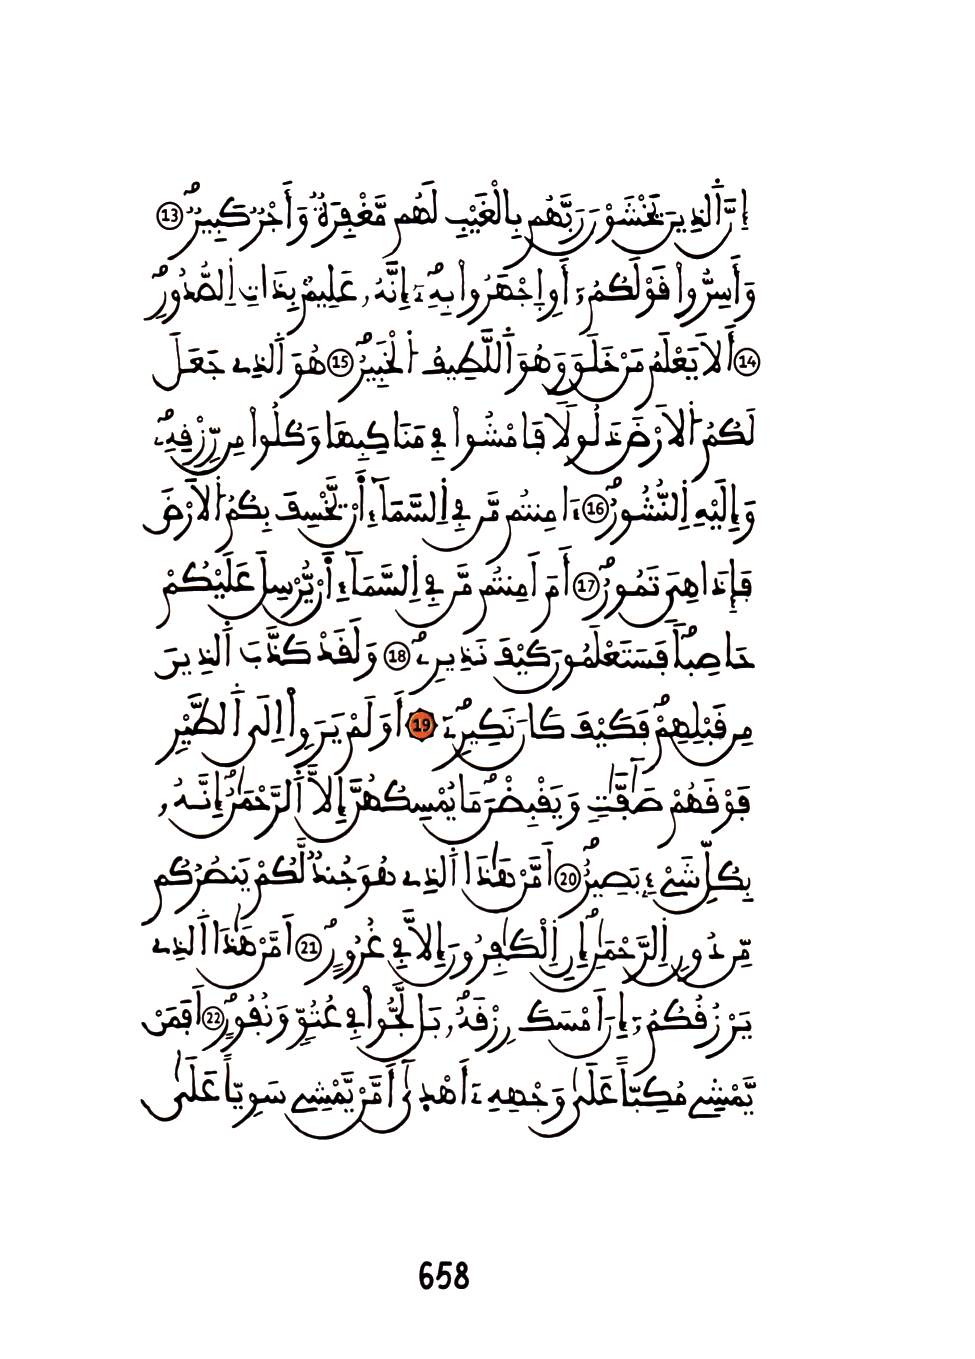 إِنَّ اَ۬لذِينَ يَخْشَوْنَ رَبَّهُم بِالْغَيْبِ لَهُم مَّغْفِرَةٞ وَأَجْرٞ كَبِيرٞ 13
وَأَسِرُّواْ قَوْلَكُمُۥٓ أَوِ اِ۪جْهَرُواْ بِهِۦٓۖ إِنَّهُۥ عَلِيمُۢ بِذَاتِ اِ۬لصُّدُورِۖ
14 أَلَا يَعْلَمُ مَنْ خَلَقَ وَهُوَ اَ۬للَّطِيفُ اُ۬لْخَبِيرُۖ 15 هُوَ اَ۬لذِے جَعَلَ
لَكُمُ اُ۬لَارْضَ ذَلُولاٗ فَامْشُواْ فِے مَنَاكِبِهَا وَكُلُواْ مِن رِّزْقِهِۦۖ
وَإِلَيْهِ اِ۬لنُّشُورُۖ 16 ءَآمِنتُم مَّن فِے اِ۬لسَّمَآءِ أَنْ يَّخْسِفَ بِكُمُ اُ۬لَارْضَ
فَإِذَا هِيَ تَمُورُۖ 17 أَمَ اَمِنتُم مَّن فِے اِ۬لسَّمَآءِ أَنْ يُّرْسِلَ عَلَيْكُمْ
حَاصِباٗۖ فَسَتَعْلَمُونَ كَيْفَ نَذِيرِۦۖ 18 وَلَقَدْ كَذَّبَ اَ۬لذِينَ
مِن قَبْلِهِمْۖ فَكَيْفَ كَانَ نَكِيرِۦٓۖ 19 أَوَلَمْ يَرَوِاْ اِلَي اَ۬لطَّيْرِ
فَوْقَهُمْ صَٰٓفَّٰتٖ وَيَقْبِضْنَۖ مَا يُمْسِكُهُنَّ إِلَّا اَ۬لرَّحْمَٰنُۖ إِنَّهُۥ
بِكُلِّ شَےْءِۢ بَصِيرٌۖ 20 اَمَّنْ هَٰذَا اَ۬لذِے هُوَ جُندٞ لَّكُمْ يَنصُرُكُم
مِّن دُونِ اِ۬لرَّحْمَٰنِۖ إِنِ اِ۬لْكَٰفِرُونَ إِلَّا فِے غُرُورٍۖ 21 اَمَّنْ هَٰذَا اَ۬لذِے
يَرْزُقُكُمُۥٓ إِنَ اَمْسَكَ رِزْقَهُۥۖ بَل لَّجُّواْ فِے عُتُوّٖ وَنُفُورٍۖ 22 اَفَمَنْ
يَّمْشِے مُكِبّاً عَلَيٰ وَجْهِهِۦٓ أَهْدۭيٰٓ أَمَّنْ يَّمْشِے سَوِيّاً عَلَيٰ
658